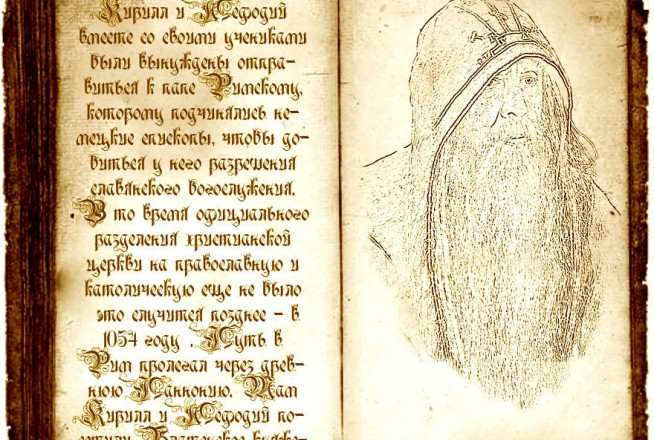 Кирилл и Мефодий
вместе со своими учениками
были вынуждены отпра-
виться к папе Римскому,
которому подчинялись не-
мецкие епископы, чтобы до-
биться у него разрешения
славянского богослужения.
В то время официального
разделения христианской
церкви на православную и
католическую еще не было
это случится позднее - в
1054 году . Путь в
Рим пролегал через древ-
нюю Паннонию. Там
Кирилл и Мефодий по-
сетили Блатенское княже-